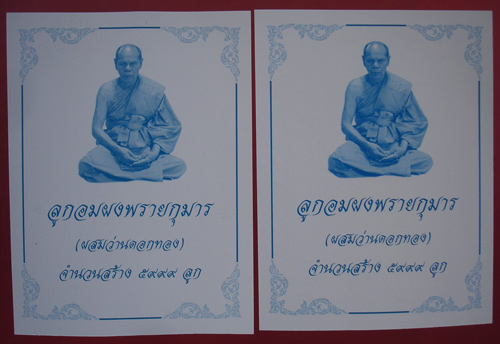 ลูกอมผงพรายกุมาร
(ผสมว่านดอกทอง)
จำนวนสร้าง ๕๙๙๙ ลูก
ลูกอมผงพรายกุมาร
(ผสมว่านดอกทอง)
จำนวนสร้าง ๕๙๙๙ ลูก